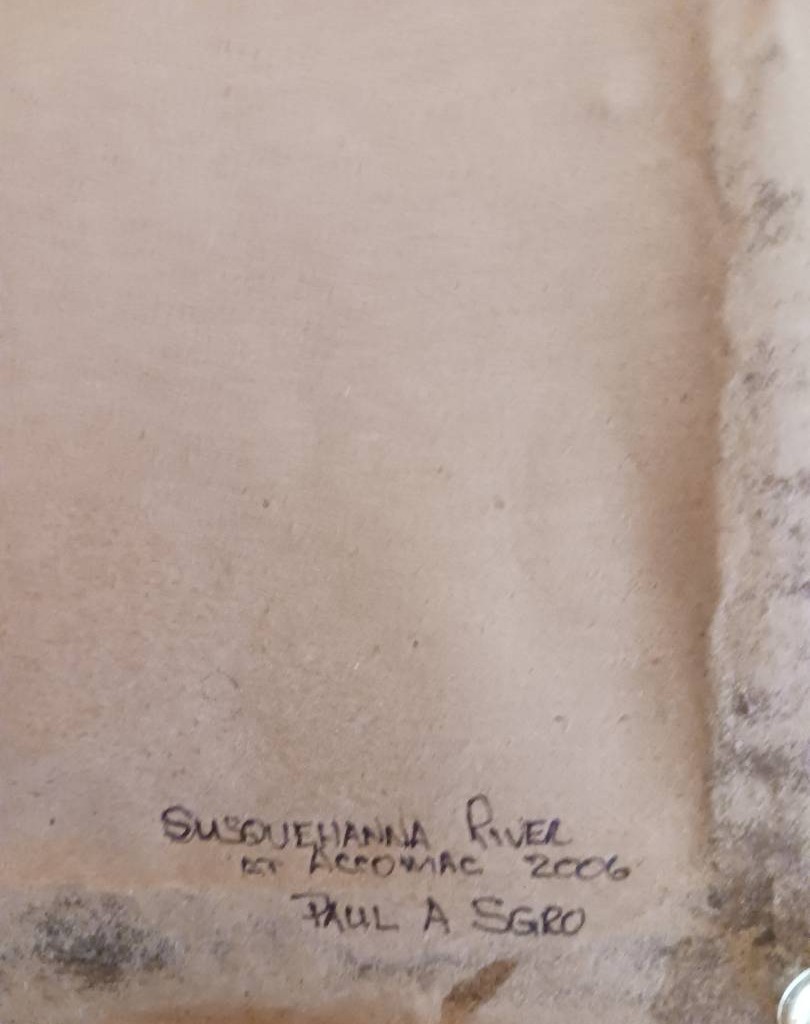 SUSQUEHANNA RIVER
AT ACCOMAC 2006
PAUL A SGRO